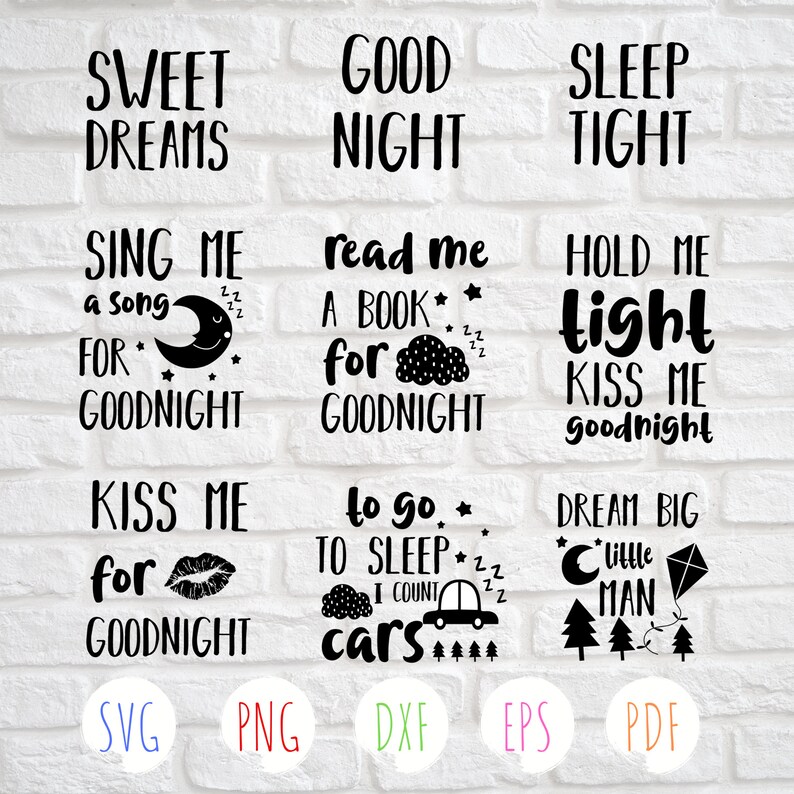 SWEET
DREAMS
GOOD
NIGHT
SLEEP
TIGHT
SING ME
a song
FOR
GOODNIGHT
zzzz
read me
A BOOK
for
GOODNIGHT
zzzz
HOLD ME
tight
KISS ME
goodnight
KISS ME
for
GOODNIGHT
to go
TO SLEEP
I COUNT
cars
zzzz
DREAM BIG
little
MAN
SVG
PNG
DXF
EPS
PDF